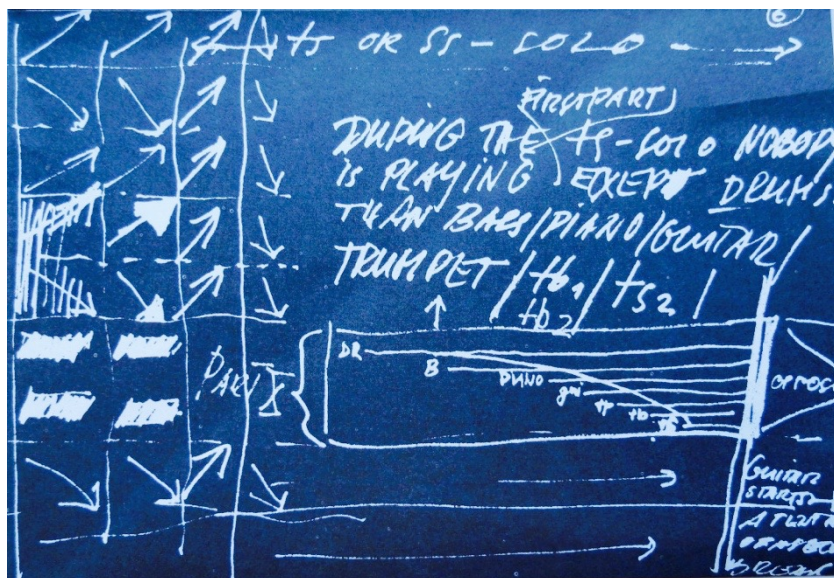 6
ts OR SS - SOLO
FIRST PART
DURING THE ts-SOLO NOBODY
IS PLAYING EXEPT DRUMS
THAN BASS/PIANO/GUITAR/
TRUMPET / tb1 / ts2 /
tb2
PART I
DR
B
PIANO
gui
tp
tb
ts
GUITAR
STARTS